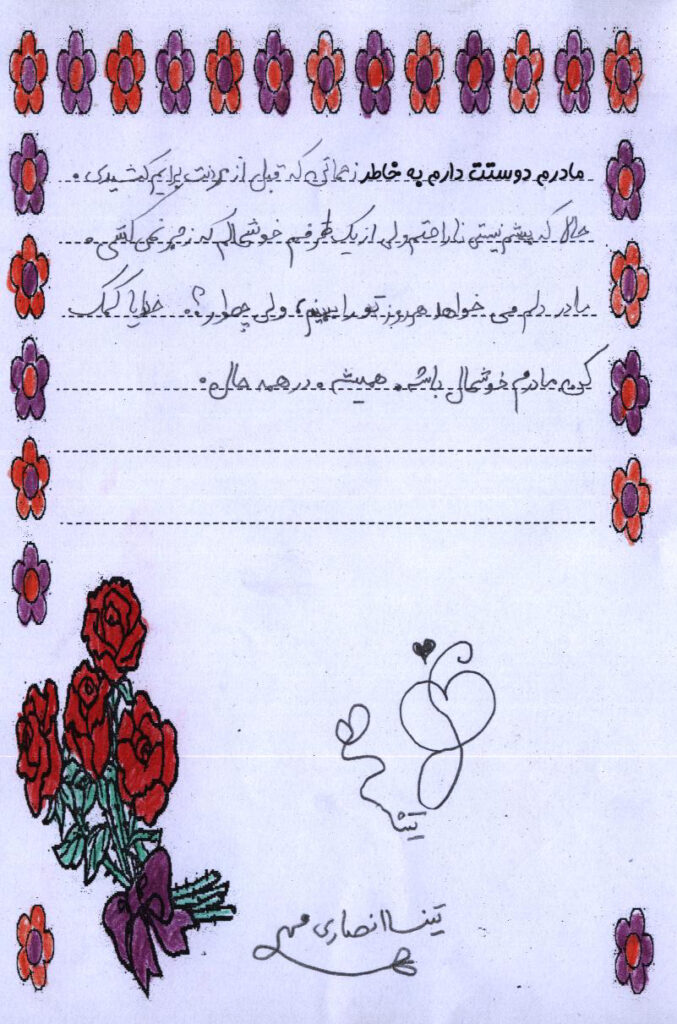 مادرم دوستت دارم به خاطر زحماتی که قبل از برایم کشیدی .
حالا که پیشم نیستی ناراحتم ولی از یک طرفم خوشحالم که زجر نمی کشی .
مادر دلم می خواهد هر روز تو را ببینم، ولی چطور؟. خدایا کمک
کن مادرم خوشحال باشه. همیشه . در همه حال.
تینا
تینا انصاری مهر